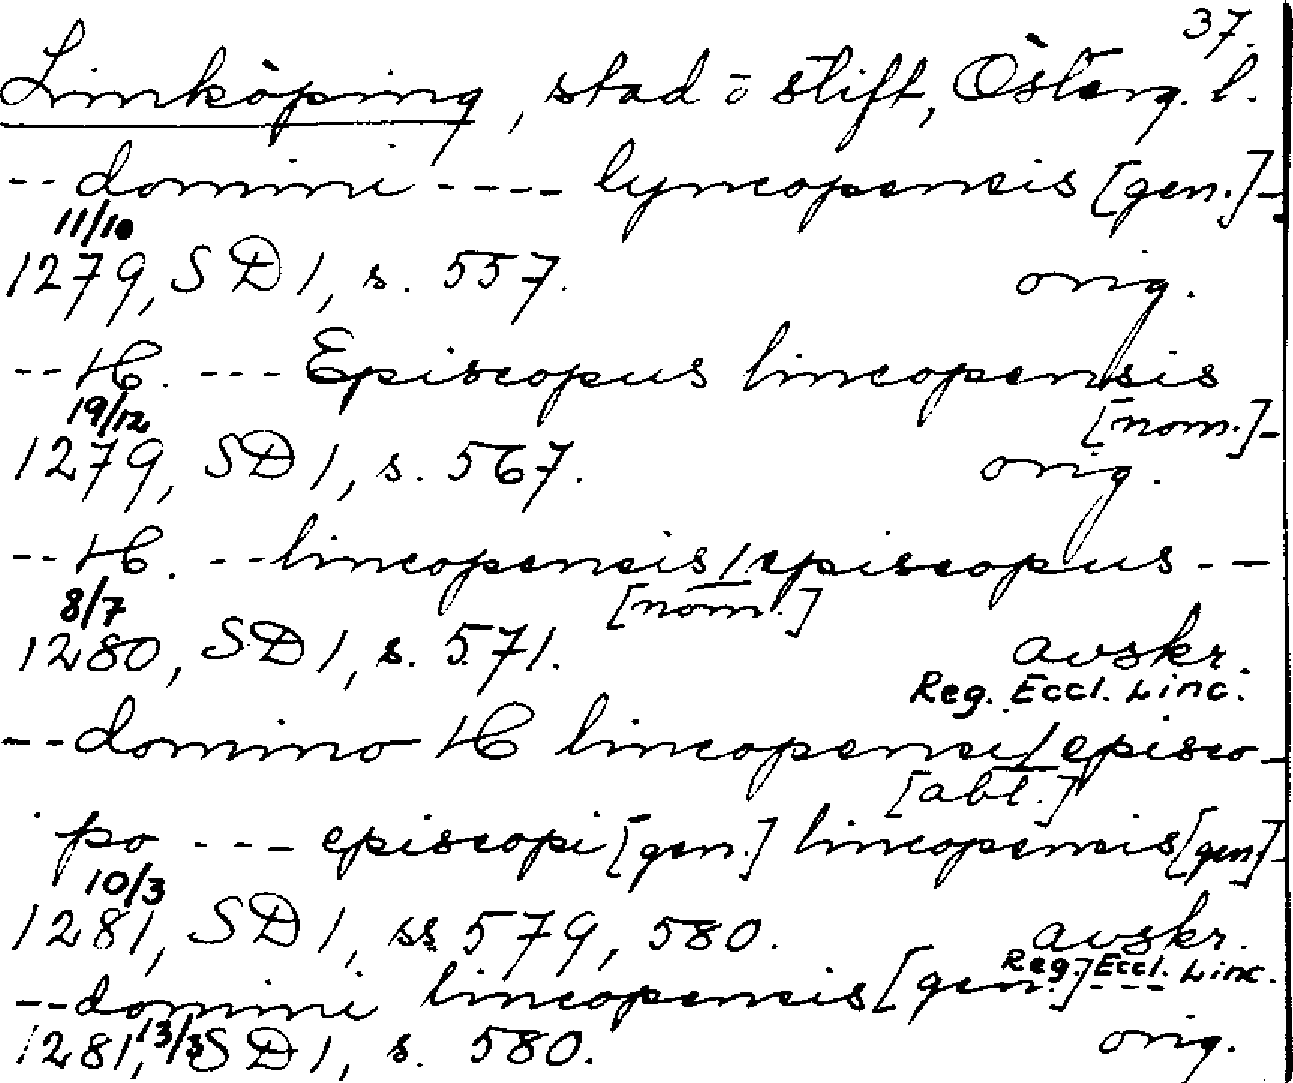 37.
Linköping, stad o stift, Österg. l.
-- domini ---- lyncopensis [gen.] --
11/10
1279, SD 1, s. 557. orig.
-- H. --- Episcopus lincopensis
[nom.] -
19/12
1279, SD 1, s. 567. orig.
-- H. -- lincopensis / episcopus --
[nom.]
8/7
1280, SD 1, s. 571. avskr.
Reg. Eccl. Linc.
-- domino H lincopensi / episco-
[abl.]
po --- episcopi [gen.] lincopensis [gen] -
10/3
1281, SD 1, ss 579, 580. avskr.
Reg. Eccl. Linc.
-- domini lincopensis [gen.] ---
13/3
1281, SD 1, s. 580. orig.